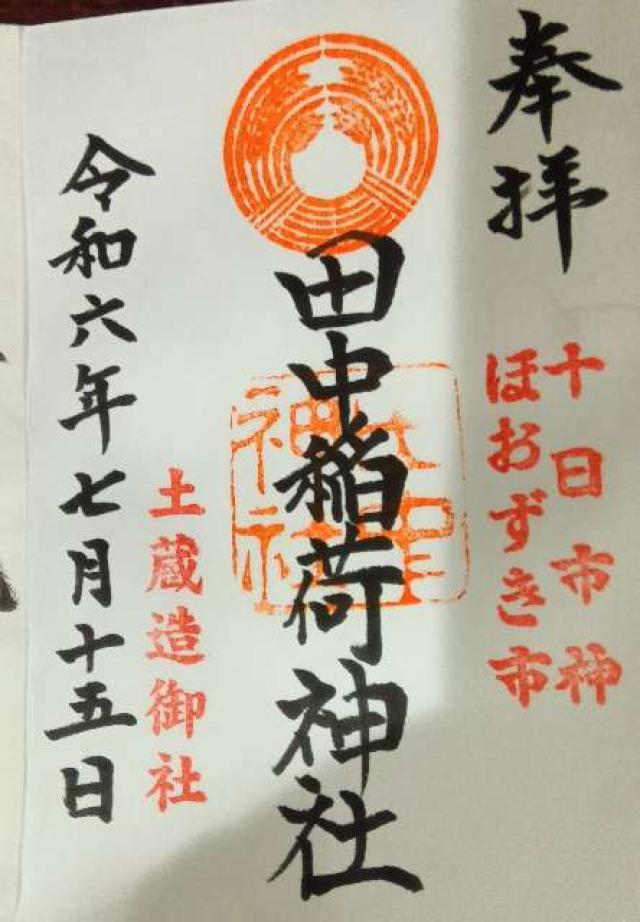 奉拝
十日市神
ほおずき市
田中稲荷神社
土蔵造御社
令和六年七月十五日